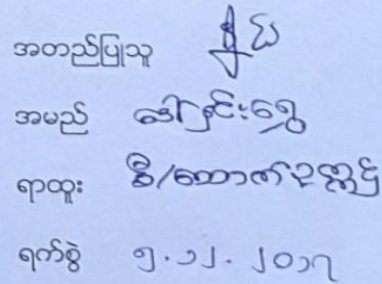 အတည်ပြုသူ
အမည် ဒေါ်နှင်းရွှေ
ရာထူး ဒီ/ထောက်ဥက္ကဋ္ဌ
ရက်စွဲ ၅.၁၂.၂၀၁၇